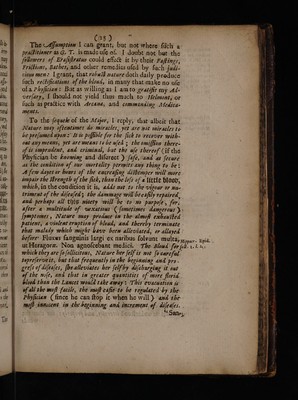 (25)
The Assumption I can grant, but not where such a
practitioner as G. T. is made use of. I doubt not but the
followers of Erasistratus could effect it by their Fastings,
Frictions, Bathes, and other remedies used by such judi-
cious men: I grant, that robust nature doth daily produce
such rectifications of the blood, in many that make no use
of a Physician: But as willing as I am to gratifie my Ad-
versary, I should not yield thus much to Helmont, or
such as practice with Arcana, and commanding Medica-
ments.
To the sequele of the Major, I reply, that albeit that
Nature may oftentimes do miracles, yet are not miracles to
be presumed upon: It is possible for the sick to recover with-
out any means, yet are means to be used; the omission there-
of is imprudent, and criminal, but the use thereof (if the
Physician be knowing and discreet) safe, and as secure
as the condition of our mortality permits any thing to be:
A few dayes or hours of the encreasing distemper will more
impair the strength of the sick, than the loss of a little blood,
which, in the condition it is, adds not to the vigour or nu-
triment of the diseased; the dammage will be easily repaired,
and perhaps all this nicety will be to no purpose, for,
after a multitude of vexatious (sometimes dangerous)
symptomes, Nature may produce in the almost exhausted
patient, a violent eruption of blood, and thereby terminate
that malady which might have been alleviated, or allayed
before: Fluxus sanguinis largi ex naribus solvunt multa,
ut Heragoræ. Non agnoscebant medici. The blood for
which they are so sollicitous, Nature her self is not so careful
to preserve it, but that frequently in the beginning and pro-
gress of diseases, she alleviates her self by discharging it out
of the nose, and that in greater quantities of more florid
blood than the Lancet would take away: This evacuation is
of all the most facile, the most easie to be regulated by the
Physician (since he can stop it when he will) and the
most innocent in the beginning and increment of diseases.